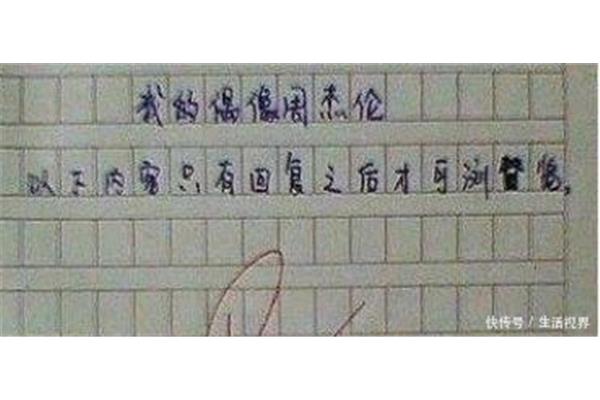 我的偶像周杰伦
以下内容只有回复之后才可浏览。
快传号 / 生活视界